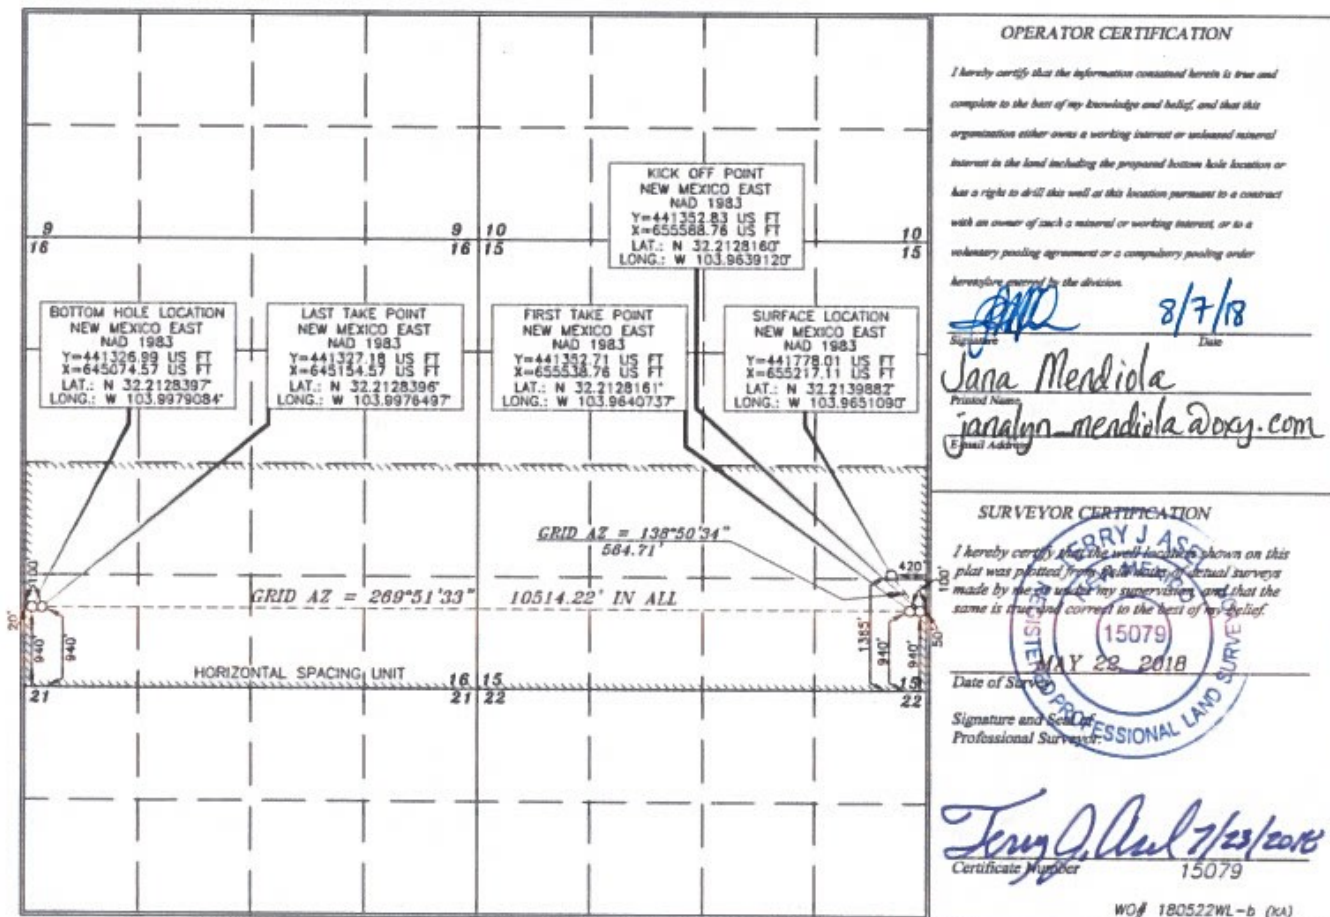 9
16
9 10
16 15
10
15
KICK OFF POINT
NEW MEXICO EAST
NAD 1983
Y=441352.83 US FT
X=655588.76 US FT
LAT.: N 32.2128160°
LONG.: W 103.9639120°
BOTTOM HOLE LOCATION
NEW MEXICO EAST
NAD 1983
Y=441326.99 US FT
X=645074.57 US FT
LAT.: N 32.2128397°
LONG.: W 103.9979084°
LAST TAKE POINT
NEW MEXICO EAST
NAD 1983
Y=441327.18 US FT
X=645154.57 US FT
LAT.: N 32.2128396°
LONG.: W 103.9976497°
FIRST TAKE POINT
NEW MEXICO EAST
NAD 1983
Y=441352.71 US FT
X=655538.76 US FT
LAT.: N 32.2128161°
LONG.: W 103.9640737°
SURFACE LOCATION
NEW MEXICO EAST
NAD 1983
Y=441778.01 US FT
X=655217.11 US FT
LAT.: N 32.2139882°
LONG.: W 103.9651090°
GRID AZ = 138°50'34"
564.71'
GRID AZ = 269°51'33" 10514.22' IN ALL
100'
20'
940'
940'
420'
100'
50'
1385'
940'
940'
HORIZONTAL SPACING UNIT
21
16 15
21 22
15
22
OPERATOR CERTIFICATION
I hereby certify that the information contained herein is true and
complete to the best of my knowledge and belief, and that this
organization either owns a working interest or unleased mineral
interest in the land including the proposed bottom hole location or
has a right to drill this well at this location pursuant to a contract
with an owner of such a mineral or working interest, or to a
voluntary pooling agreement or a compulsory pooling order
heretofore entered by the division.
8/7/18
Signature Date
Jana Mendiola
Printed Name
janalyn_mendiola@oxy.com
E-mail Address
SURVEYOR CERTIFICATION
I hereby certify that the well location shown on this
plat was plotted from field notes of actual surveys
made by me or under my supervision, and that the
same is true and correct to the best of my belief.
TERRY J. ASEL
NEW MEXICO
15079
REGISTERED PROFESSIONAL LAND SURVEYOR
MAY 22, 2018
Date of Survey
Signature and Seal of
Professional Surveyor:
Terry J. Asel 7/23/2018
Certificate Number 15079
WO# 180522WL-b (KA)